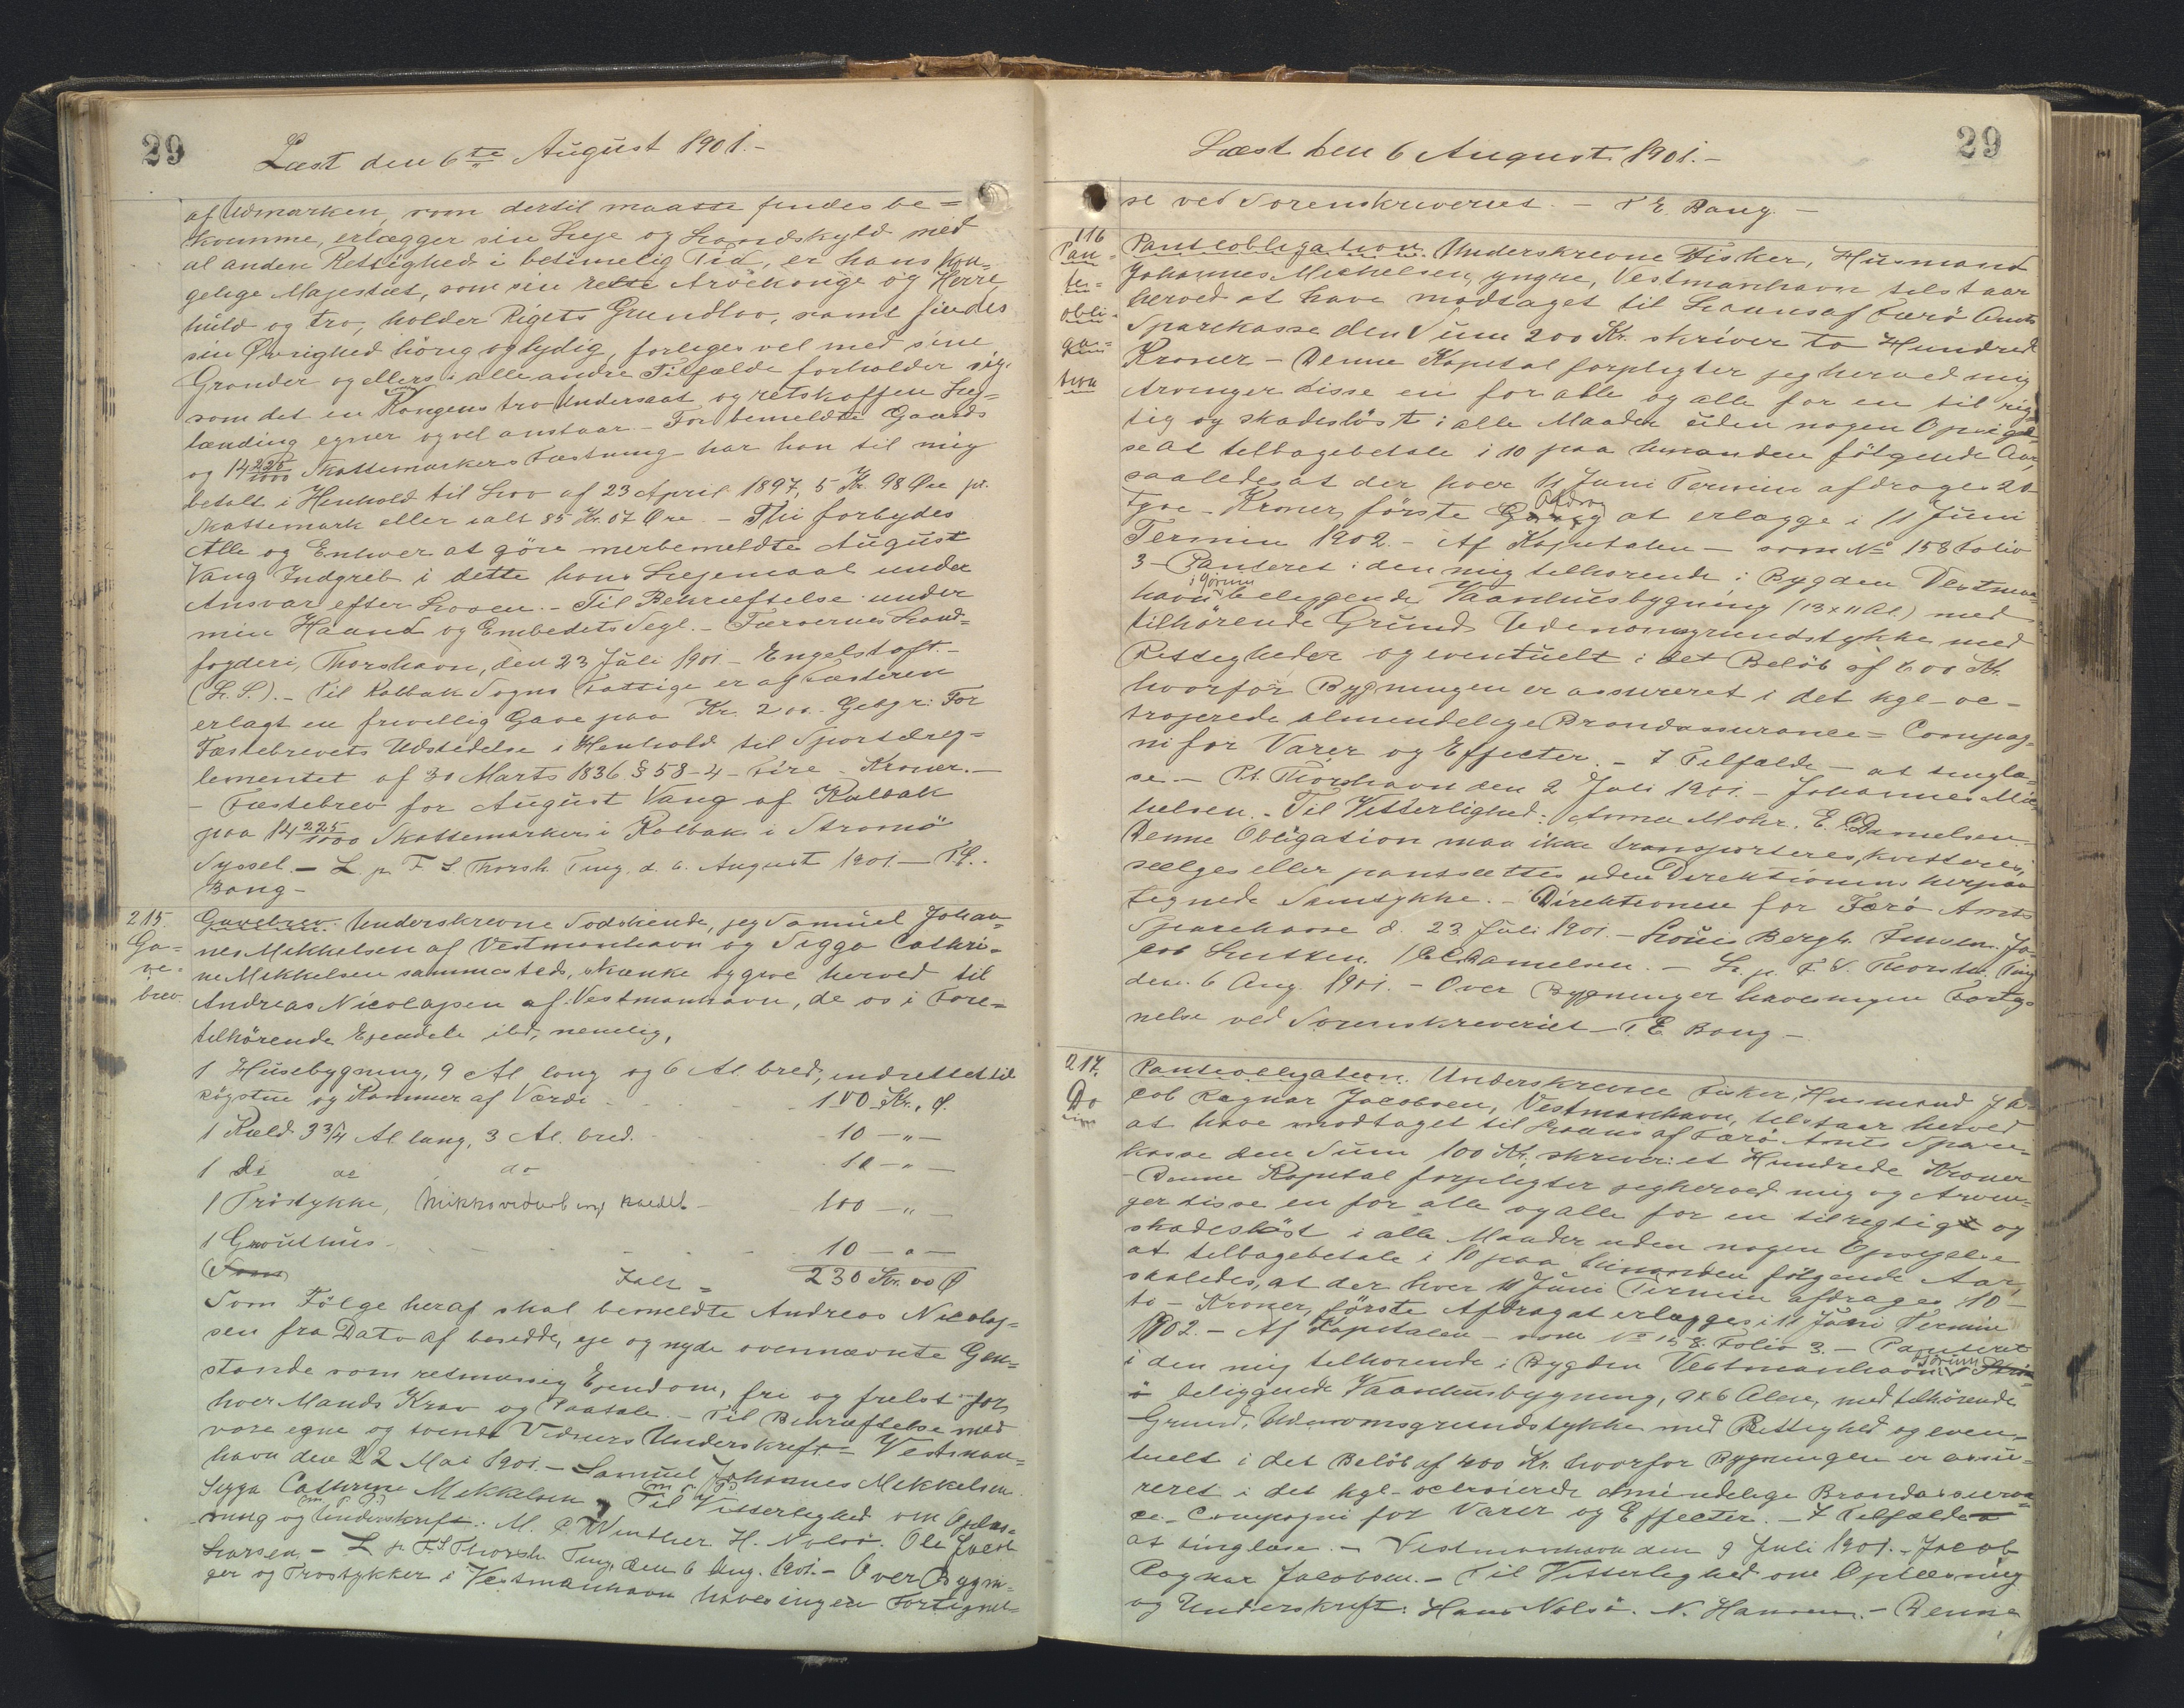 29
Læst den 6te August 1901.-
af Udmarken, som dertil maatte findes be=
komme, erlægger sin Leje og Landskyld med
al anden Rettighed i betimelig Tid, er hans kon=
gelige Majestæt, som sin rette Arvekonge og Herre
huld og tro, holder Rigets Grundlov, samt findes
sin Øvrighed hörig og lydig, forliges vel med sine
Grander og ellers i alle andre Tilfælde forholder sig,
som det en Kongens tro Undersaat og retskaffen Lej=
lænding egner og vel anstaar.- For bemeldte Gaards
og 14 225/1000 Skattemarkers Fæstning har han til mig
betalt i Henhold til Lov af 23 April 1897, 5 Kr. 98 Øre pr.
Skattemark eller ialt 85 Kr. 07 Øre.- Thi forbydes
Alle og Enhver at göre merbemeldte August
Vang Indgreb i dette hans Lejemaal under
Ansvar efter Loven.- Til Bekræftelse under
min Haand og Embedets Segl.- Færøernes Land=
fogderi, Thorshavn, den 23 Juli 1901 - Engelstoft.-
(L. S.).- Til Kalbak Sogns Fattige er af Fæsteren
erlagt en frivillig Gave paa Kr. 2 00. Gebyr: For
Fæstebrevets Udstedelse i Henhold til Sportelreg=
lementet af 30 Marts 1836 § 58 - 4 - fire - Kroner.-
- Fæstebrev for August Vang af Kalbak
paa 14 225/1000 Skattemarker i Kalbak i Stromö
Syssel.- L. p. F. S. Thorsh. Ting. d. 6. August 1901.- T.E.
Bang-
215.
Ga=
ve=
brev.
Gavebrev. Underskrevne Sodskende, jeg Samuel Johan=
nes Mekkelsen af Vestmanhavn og Sigga Cathri=
ne Mekkelsen sammesteds, skænke og give herved til
Andreas Nicolajsen af Vestmanhavn, de os i Fore=
tilhörende Ejendele ibd, nemlig,
1 Husebygning, 9 Al lang og 6 Al. bred, indrettet til
Rögstue og Kammer af Værdi - 100 Kr. Ø.
1 Kjæld 3 3/4 Al lang, 3 Al. bred. - 10 - " -
1 do do do 10 - " -
1 Tröstykke, kaldet - 100 - " -
1 Grouthus - 10 - " -
Ialt = 230 Kr. 00 Ø
Som Fölge heraf skal bemeldte Andreas Nicolaj=
sen fra Dato af besidde, eje og nyde ovennævnte Gen=
stande som retmæssig Ejendom, fri og frelst for
hver Mands Krav og Paatale.- Til Bekræftelse med
vore egne og tvende Vidners Underskrift.- Vestman=
havn den 22 Mai 1901.- Samuel Johannes Mekkelsen.
Sigga Cathrine Mekkelsen m. f. P. Til Vitterlighed om Oplæs=
ning og Underskrift: M. C. Winther. H. Nolsö. Ole Jacob
Larsen.- L. p. F. S. Thorsh. Ting, den 6 Aug. 1901.- Over Bygnin=
ger og Trostykker i Vestmanhavn haves ingen Fortegnel=
29
Læst den 6 August 1901.-
se ved Sorenskriveriet.- T. E. Bang.-
116
Pan=
te=
obli=
ga=
tion
Panteobligation. Underskrevne Fisker, Husmand
Johannes Michelsen, yngre, Vestmanhavn tilstaar
herved at have modtaget til Laans af Færö Amts
Sparekasse den Sum 200 Kr. skriver to Hundred
Kroner - Denne Kapital forpligter jeg herved mig
Arvinger disse en for alle og alle for en til rig=
tig og skadeslöst i alle Maader uden nogen Opsigel=
se at tilbagebetale i 10 paa hinanden fölgende Aar,
saaledes at der hver 11 Juni Termin afdrages 20
tyve - Kroner, förste Afdrag at erlægge i 11 Juni
Termin 1902.- Af Kapitalen - som No 158 Folio
3 - Panteret i den mig tilhorende i Bygden Vestman=
havn i Görum beliggende Vaanhusbygning (13 x 11 Al.) med
tilhörende Grund, Udenomsgrundstykke med
Rettigheder og eventuelt i det Belöb af 600 Kr.
hvorfor Bygningen er assureret i det kgl-oc-
trojerede almindelige Brandassurance = Compag=
ni for Varer og Effecter.- I Tilfælde - at tinglæ=
se.- Pt. Thorshavn den 2 Juli 1901.- Johannes Mic=
helsen.- Til Vitterlighed: Anna Mohr. E. C. Danielsen.
Denne Obligation maa ikke transporteres, kvitteres,
sælges eller pantsættes uden Direktionens herpaa
tegnede Samtykke.- Direktionen for Færö Amts
Sparekasse d. 23 Juli 1901.- Louis Bergh. Ja=
cob Lutzen. / E. C. Danielsen.- L. p. F. S. Thorsh. Ting
den 6 Aug. 1901.- Over Bygninger haves ingen Forteg=
nelse ved Sorenskriveriet - T. E. Bang -
217.
Do
Panteobligation. Underskrevne Fisker, Husmand Ja=
cob Ragnar Jacobsen, Vestmanhavn, tilstaar herved
at have modtaget til Laans af Færö Amts Spare=
kasse den Sum 100 Kr. skriver: et Hundrede Kroner
- Denne Kapital forpligter jeg herved mig og Arvin=
ger disse en for alle og alle for en til rigtigt og
skadeslöst i alle Maader uden nogen Opsigelse
at tilbagebetale i 10 paa hinanden fölgende Aar,
saaledes, at der hver 11 Juni Termin afdrages 10 -
ti - Kroner, förste Afdrag at erlægges i 11 Juni Termin
1902.- Af Kapitalen - som No 158. Folio 3.- Panteret
i den mig tilhorende i Bygden Vestmanhavn
beliggende Vaanhusbygning, 9x6 Alen, med tilhörende
Grund, Udenomsgrundstykke med Rettighed og even=
tuelt i det Belöb af 400 Kr. hvorfor Bygningen er assu=
reret i det kgl-octroierede almindelige Brandassuran=
ce-Compagni for Varer og Effecter.- I Tilfælde
at tinglæse.- Vestmanhavn den 9 Juli 1901.- Jacob
Ragnar Jacobsen.- Til Vitterlighed om Oplæsning
og Underskrift: Hans Nolsö. N. Hansen.- Denne